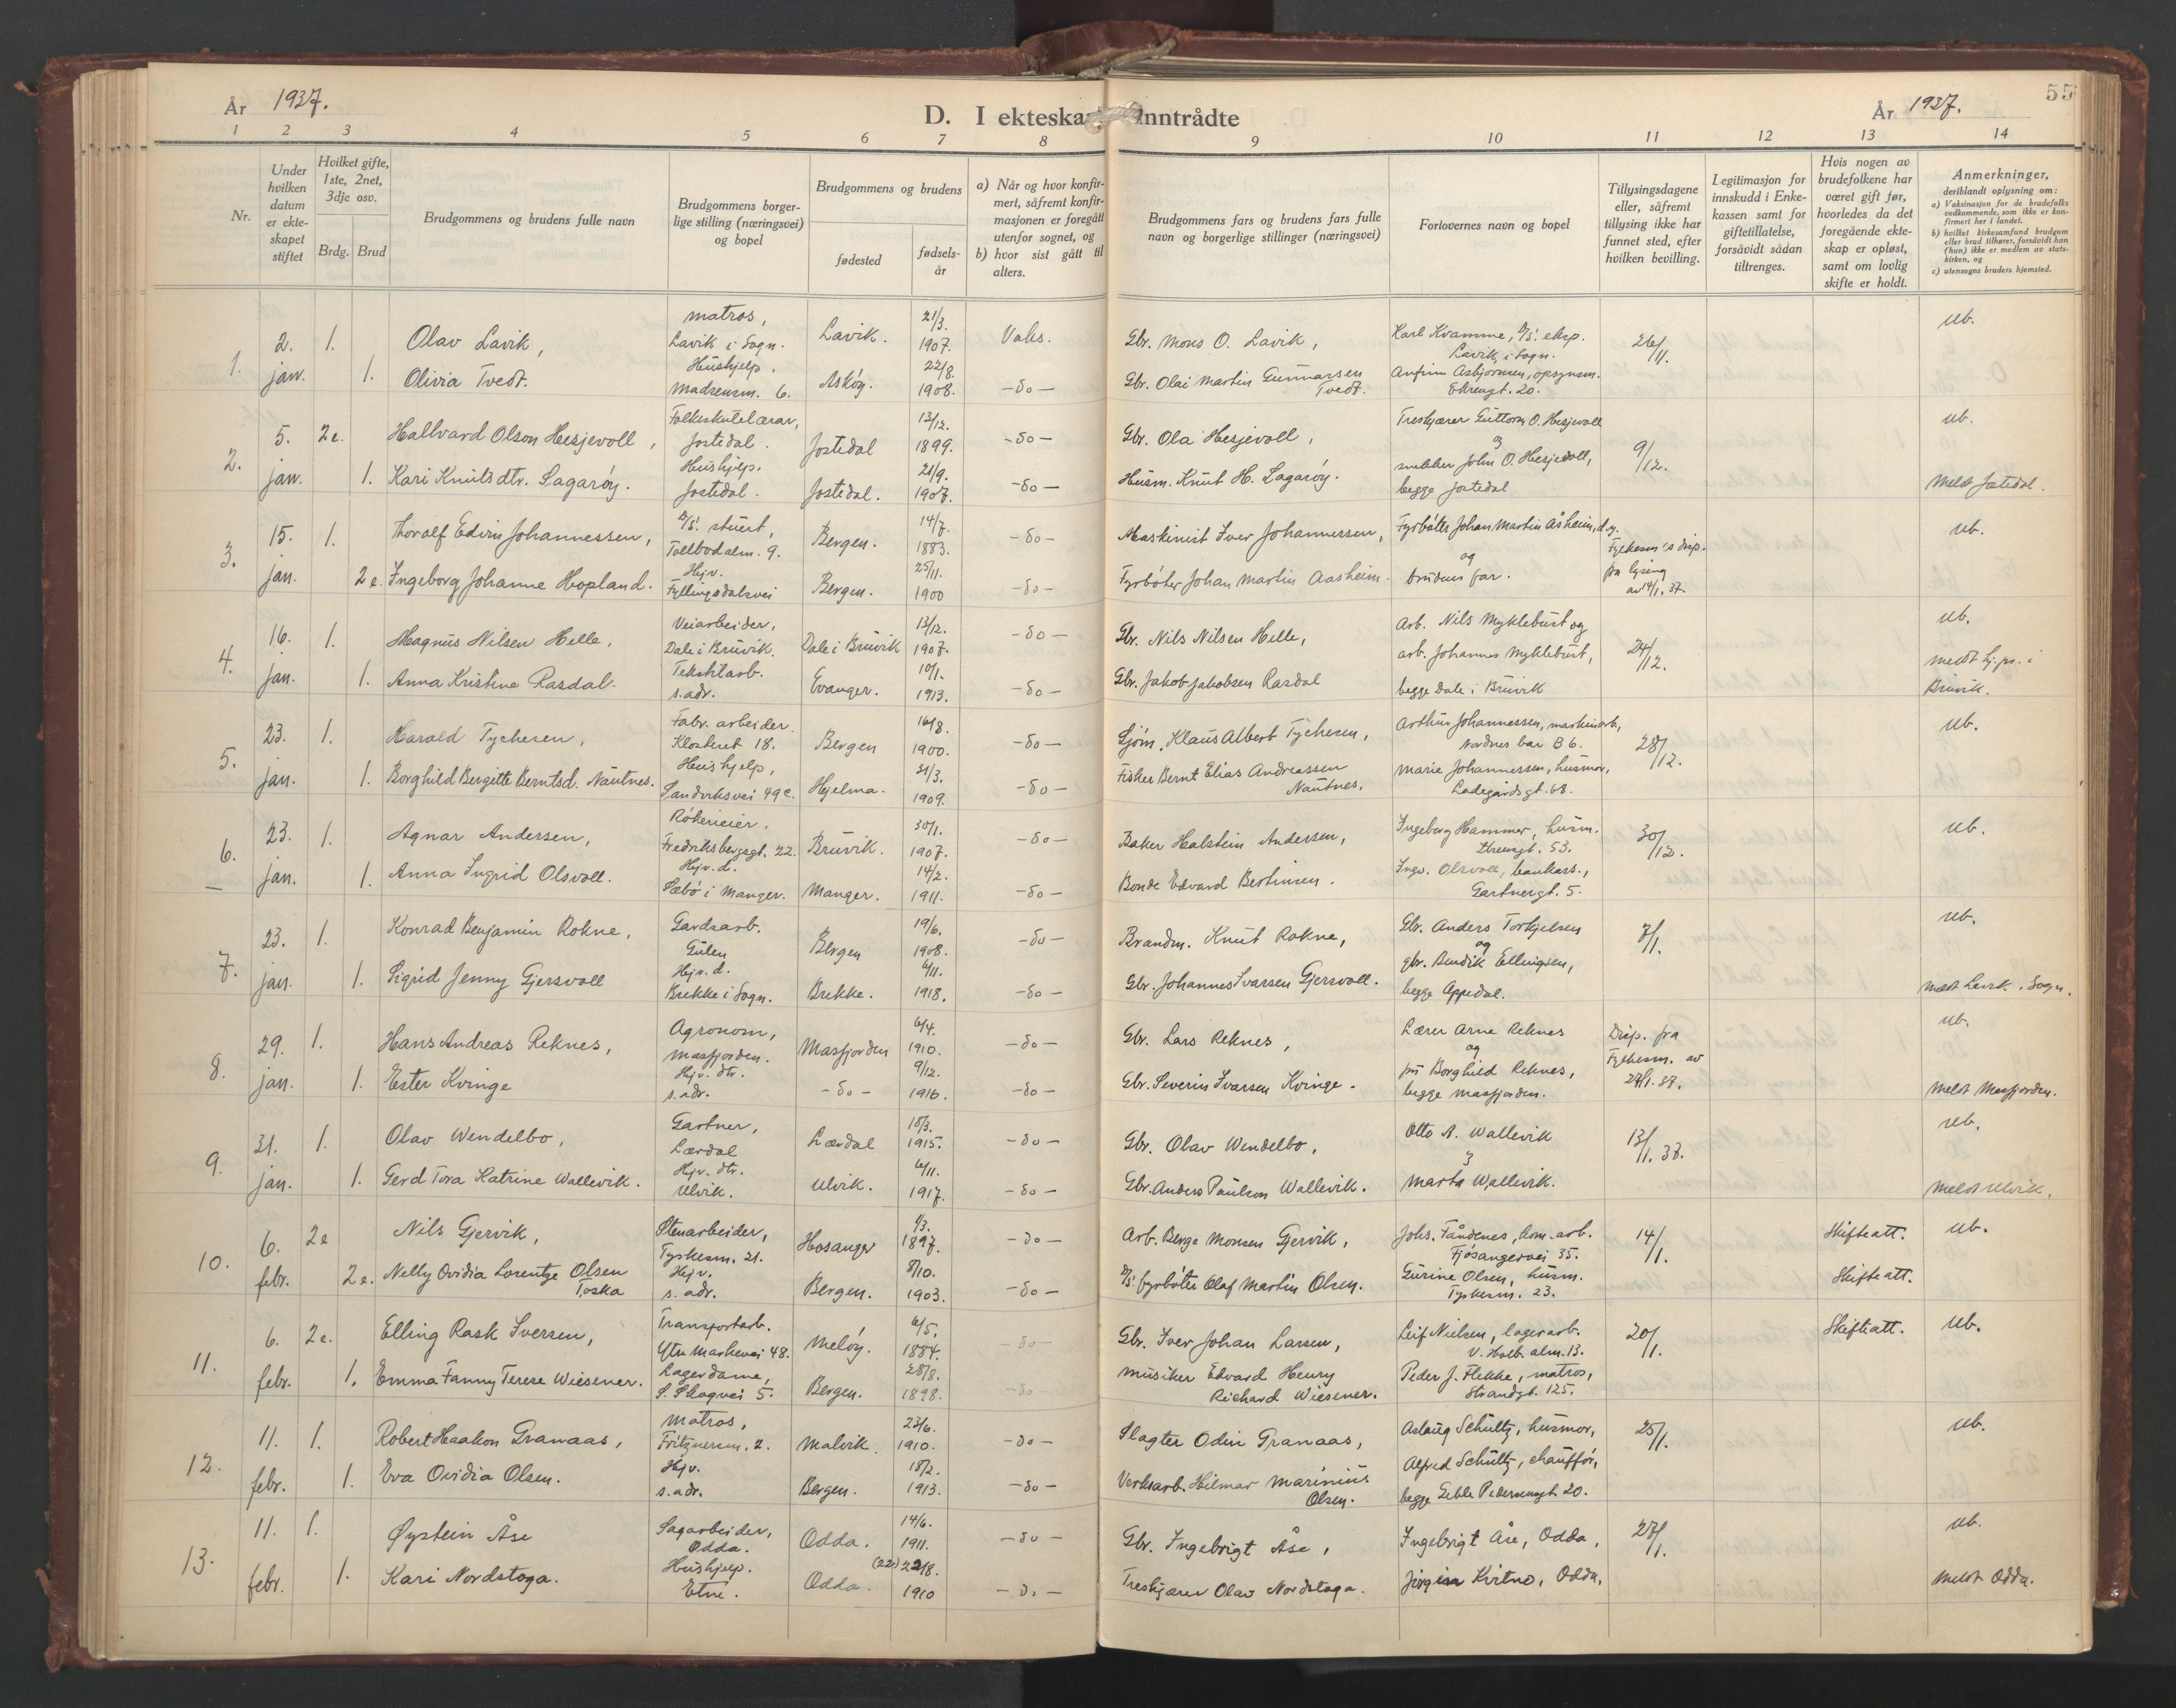 År 1937.
D. I ekteska inntrådte
År 1937.
55
1 2 3 4 5 6 7 8 9 10 11 12 13 14
Nr.
Under hvilken datum er ekteskapet stiftet
Hvilket gifte, 1ste, 2net, 3dje osv.
Brdg. Brud
Brudgommens og brudens fulle navn
Brudgommens borgerlige stilling (næringsvei) og bopel
Brudgommens og brudens
fødested
fødselsår
a) Når og hvor konfirmert, såfremt konfirmasjonen er foregått utenfor sognet, og
b) hvor sist gått til alters.
Brudgommens fars og brudens fars fulle navn og borgerlige stillinger (næringsvei)
Forlovernes navn og bopel
Tillysingsdagene eller, såfremt tillysing ikke har funnet sted, efter hvilken bevilling.
Legitimasjon for innskudd i Enkekassen samt for giftetillatelse, forsåvidt sådan tiltrenges.
Hvis nogen av brudefolkene har været gift før, hvorledes da det foregående ekteskap er opløst, samt om lovlig skifte er holdt.
Anmerkninger,
deriblandt oplysning om:
a) Vaksinasjon for de brudefolks vedkommende, som ikke er konfirmert her i landet.
b) hvilket kirkesamfund brudgom eller brud tilhører, forsåvidt han (hun) ikke er medlem av statskirken, og
c) utensogns bruders hjemsted.
1. 2. jan. 1. Olav Lavik, matros, Lavik i Sogn. Lavik. 21/3. 1907. Vaks. Gbr. Mons O. Lavik, Karl Kvamme, D/S. eksp. Lavik i Sogn. 26/11. ub.
1. Olivia Tvedt. Hushjelp, Madsensm. 6. Askøy. 22/8. 1908. -do- Gbr. Olai Martin Gunnarsen Tvedt. Anfinn Asbjørnsen, opsynsm. Ekrengt. 20.
2. 5. jan. 2e. Hallvard Olson Hesjevoll, Folkeskulelærar, Jostedal. Jostedal 13/12. 1899. -do- Gbr. Ola Hesjevoll, Treskjærer Guttorm O. Hesjevoll og 9/12. ub.
1. Kari Knutsdtr. Lagarøy. Hushjelp. Jostedal. Jostedal. 21/9. 1907. -do- Husm. Knut H. Lagarøy. snekker John O. Hesjevoll, begge Jostedal Meldt Jostedal.
3. 15. jan. 1. Thoralf Edvin Johannessen, D/S. stuert, Tollbodalm. 9. Bergen. 14/7. 1883. -do- Maskinist Iver Johannessen, Fyrbøter Johan Martin Åsheim, d.y. og Fylkesm's disp. fra lysing av 14/1. 37. ub.
2e. Ingeborg Johanne Hopland. Hjv. Fyllingsdalsvei Bergen. 25/11. 1900 -do- Fyrbøter Johan Martin Aasheim. brudens far.
4. 16. jan. 1. Magnus Nilsen Helle, Veiarbeider, Dale i Bruvik. Dale i Bruvik 13/12. 1907. -do- Gbr. Nils Nilsen Helle, Arb. Nils Myklebust og 24/12. ub.
1. Anna Kristine Rasdal. Tekstilarb. s. adr. Evanger. 10/1. 1913. -do- Gbr. Jakob Jakobsen Rasdal arb. Johannes Myklebust, begge Dale i Bruvik meldt hj.pr. i Bruvik.
5. 23. jan. 1. Harald Tychesen, Fabr. arbeider. Klosteret 18. Bergen 16/8. 1900. -do- Sjøm. Klaus Albert Tychesen, Arthur Johannessen, maskinarb, Nordnes bar B 6. 28/12. ub.
1. Borghild Bergitte Berntsd. Nautnes. Hushjelp, Sandviksvei 49c. Hjelma. 31/3. 1909. -do- Fisker Bernt Elias Andreassen Nautnes. Marie Johannessen, husmor, Ladegårdsgt. 68.
6. 23. jan. 1. Agnar Andersen, Røkerieier, Fredriksbergsgt. 22. Bruvik. 30/1. 1907. -do- Baker Halstein Andersen, Ingeborg Hammer, husm. Ekrengt. 53. 30/12. ub.
1. Anna Ingrid Olsvoll. Hjv. d. Sæbø i Manger. Manger. 14/2. 1911. -do- Bonde Edvard Bertinsen. Ingv. Olsvoll, bankass., Gartnergt. 5.
7. 23. jan. 1. Konrad Benjamin Rokne, Gardsarb. Gulen Bergen 19/6. 1908. -do- Brandm. Knut Rokne, Gbr. Anders Torkjelsen og 7/1. ub.
1. Sigrid Jenny Gjersvoll Hjv. d. Brekke i Sogn. Brekke. 6/11. 1918. -do- Gbr. Johannes Ivarsen Gjersvoll. gbr. Bendik Ellingsen, begge Appedal. meldt Lavik, Sogn.
8. 29. jan. 1. Hans Andreas Reknes, Agronom, Masfjorden. Masfjorden 6/4. 1910. -do- Gbr. Lars Reknes, Lærer Arne Reknes og Disp. fra Fylkesm. av 27/1. 37. ub.
1. Ester Kvinge Hjv. dtr. s. adr. -do- 9/12. 1916. -do- Gbr. Severin Ivarsen Kvinge. frk Borghild Reknes, begge Masfjorden. Meldt Masfjorden.
9. 31. jan. 1. Olav Wendelbo, Gartner, Lærdal Lærdal 18/3. 1915. -do- Gbr. Olav Wendelbo, Otto A. Wallevik og 13/1. 37. ub.
1. Gerd Tora Katrine Wallevik. Hjv. dtr. Ulvik. Ulvik. 6/11. 1917. -do- Gbr. Anders Paulson Wallevik. Marta Wallevik. Meldt Ulvik.
10. 6. febr. 2e Nils Gjervik, Stenarbeider, Tyskesm. 21. Hosanger 1/3. 1897. -do- Arb. Berge Monsen Gjervik, Johs. Fåndenes, kom. arb. Fjøsangervei 35. 14/1. Skifteatt. ub.
2e. Nelly Ovidia Lorentze Olsen Toska Hjv. s. adr. Bergen. 8/10. 1903. -do- D/S. fyrbøter Olaf Martin Olsen. Gurine Olsen, husm. Tyskesm. 23. Skifteatt.
11. 6. febr. 2e. Elling Rask Iversen, Transportarb. Ytre Markevei 48. Meløy. 6/5. 1884. -do- Gbr. Iver Johan Larsen, Leif Nielsen, lagerarb. V. Holb. alm. 13. 20/1. Skifteatt. ub.
1. Emma Fanny Terese Wiesener. Lagerdame, S. Skogvei 5. Bergen. 28/8. 1898. -do- Musiker Edvard Henry Richard Wiesener. Peder J. Flekke, matros, Strandgt. 125.
12. 11. febr. 1. Robert Haakon Granaas, Matros, Fritznersm. 2. Malvik. 23/6. 1910. -do- Slagter Odin Granaas, Aslaug Schultz, husmor, 25/1. ub.
1. Eva Ovidia Olsen. Hjv. s. adr. Bergen. 18/2. 1913. -do- Verksarb. Hilmar Marinius Olsen. Alfred Schultz, chauffør, begge Lekle Pedersensgt. 20.
13. 11. febr. 1. Øystein Åse Sagarbeider, Odda. Odda. 14/6. 1911. -do- Gbr. Ingebrigt Åse, Ingebrigt Åse, Odda, 27/1. ub.
1. Kari Nordstoga. Hushjelp. Etne. Odda. (22) 22/8. 1910 -do- Treskjærer Olav Nordstoga. Kvitno, Odda. Meldt Odda.